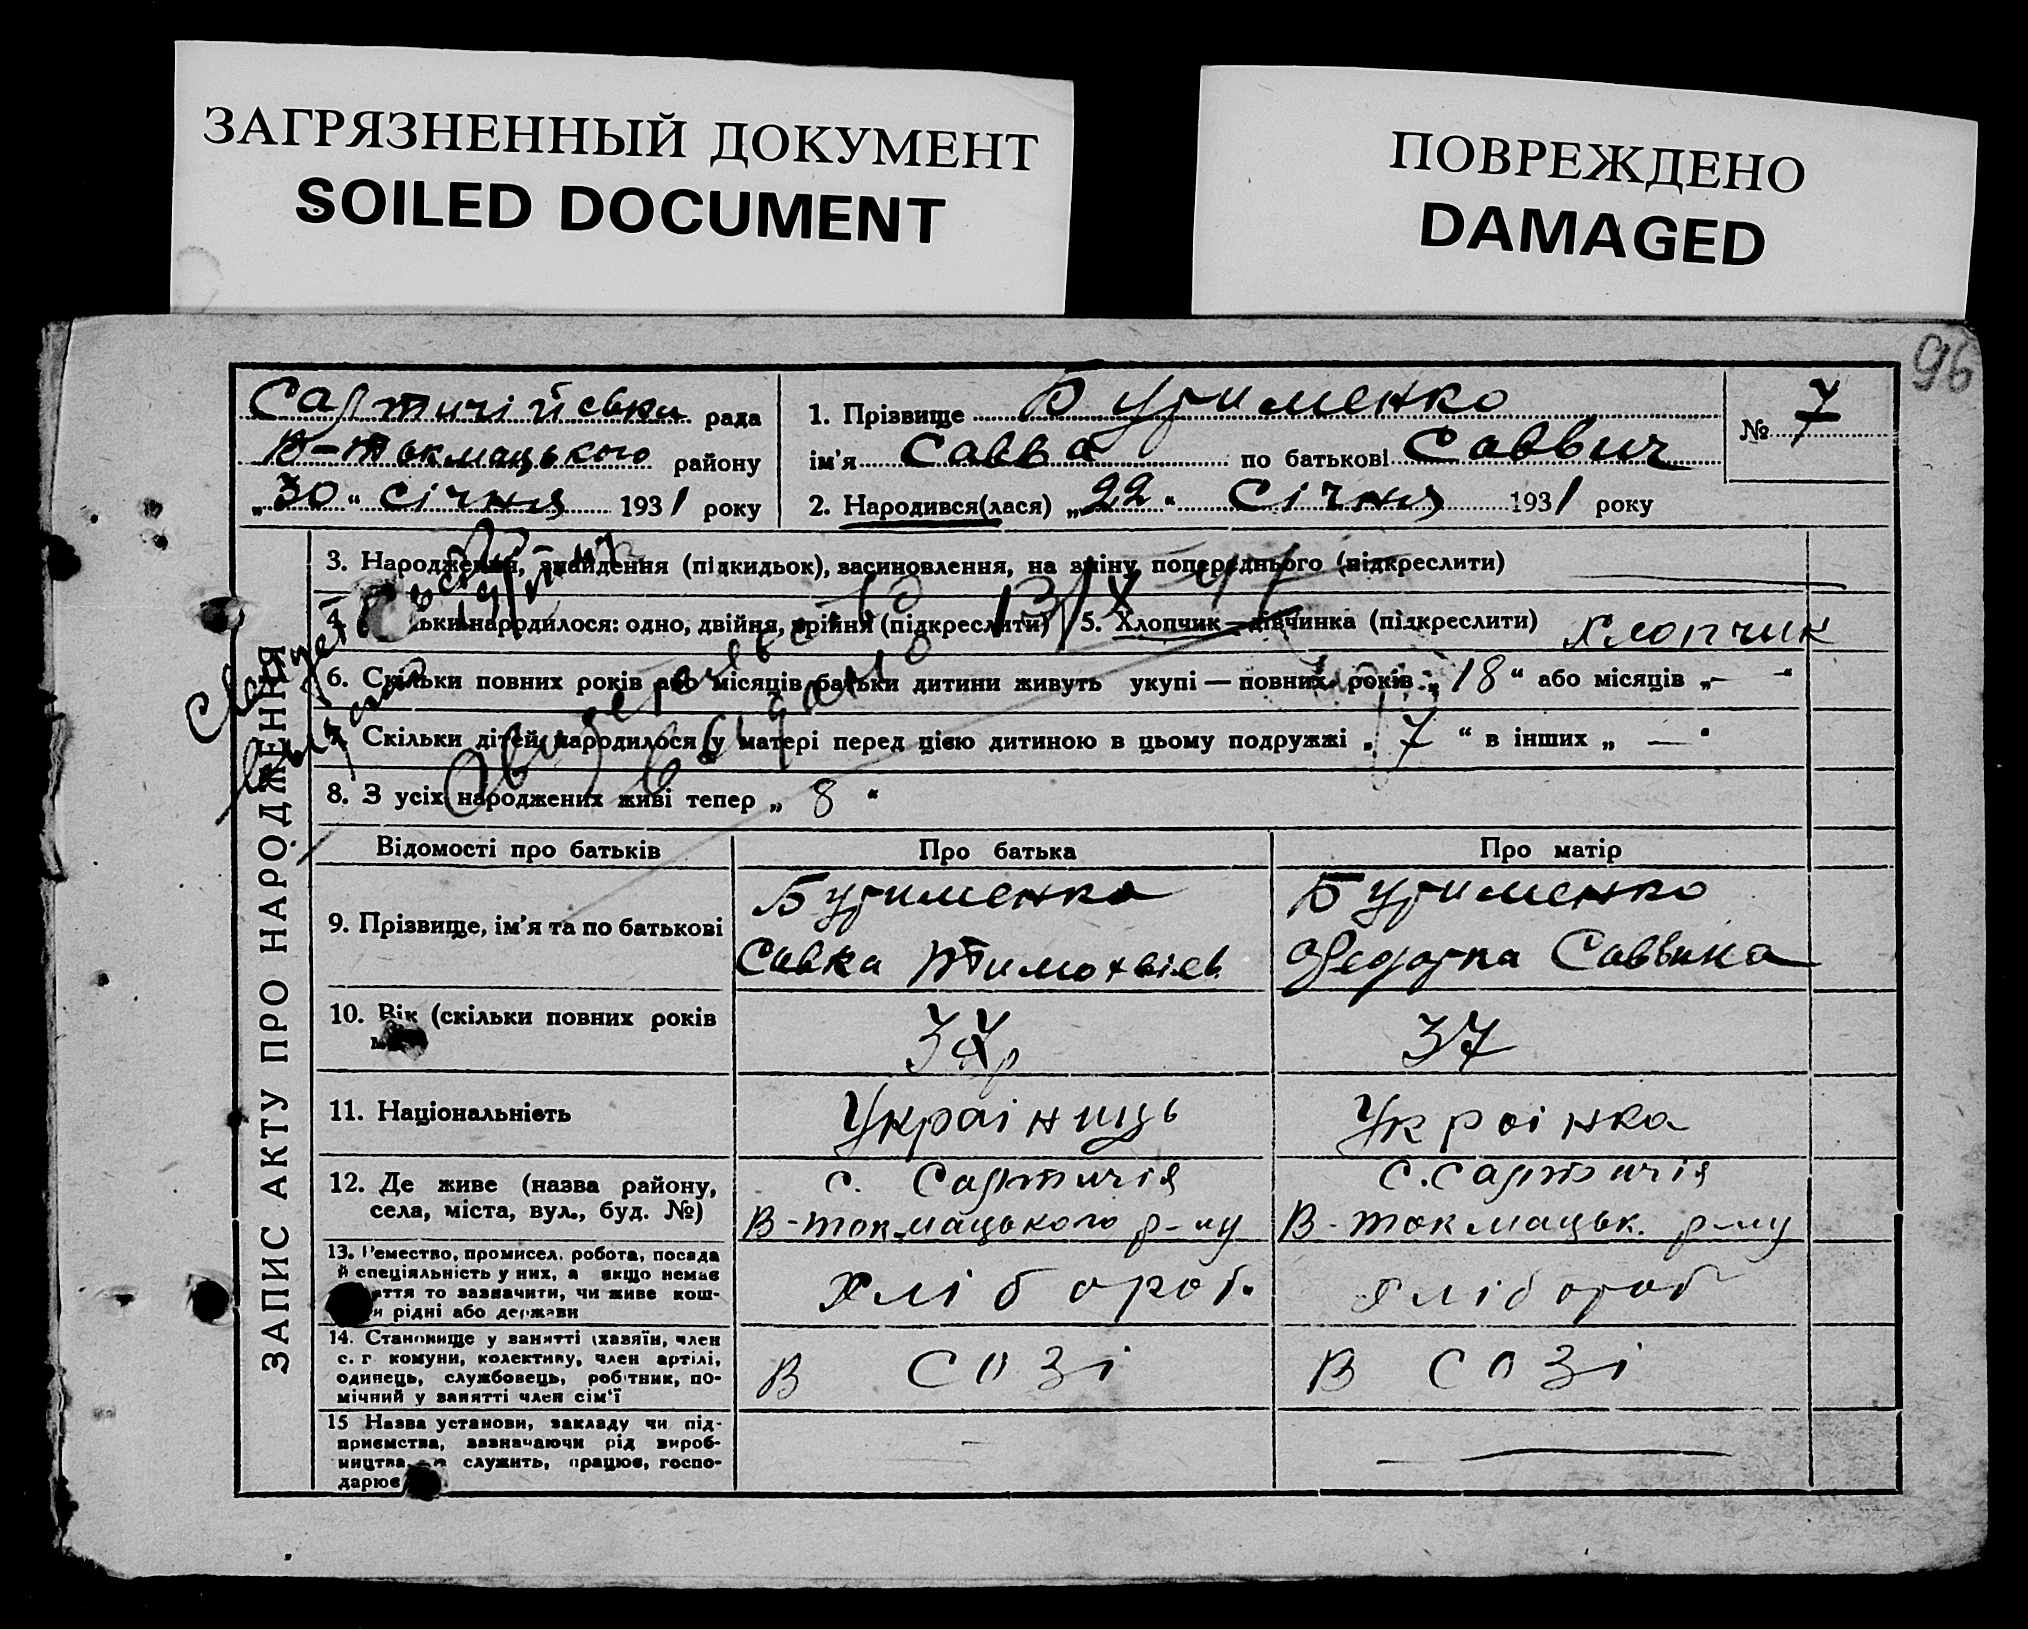 ЗАГРЯЗНЕННЫЙ ДОКУМЕНТ
SOILED DOCUMENT
ПОВРЕЖДЕНО
DAMAGED
96
Сартичійськи рада
В-Токмацького району
„30“ січня 1931 року
1. Прізвище Бутименко
ім'я Савва по батькові Саввич
2. Народився(лася) „22“ Січня 1931 року
№ 7
ЗАПИС АКТУ ПРО НАРОДЖЕННЯ
3. Народження, знайдення (підкидьок), засиновлення, на зміну попереднього (підкреслити)
ьки народилося: одно, двійня, трійня (підкреслити) 5. Хлопчик — дівчинка (підкреслити) Хлопчик
6. Скільки повних років або місяців батьки дитини живуть укупі — повних років „18“ або місяців „—“
Скільки дітей народилося у матері перед цією дитиною в цьому подружжі „7“ в інших „—“
8. З усіх народжених живі тепер „8“
Свидетельство выдано
Відомості про батьків Про батька Про матір
9. Прізвище, ім'я та по батькові
Бутименко
Савка Тимохвієв
Бутименко
Федорка Саввина
10. Вік (скільки повних років
37
11. Національність Україниць Українка
12. Де живе (назва району,
села, міста, вул., буд. №)
с. Сартичія
В-Токмацького р-ну
с. Сартичія
В-Токмацьк. р-ну
13. Ремество, промисел, робота, посада
й спеціяльність у них, а якщо немає
аття то зазначити, чи живе кош-
и рідні або держави
Хлібороб. Хлібороб
14. Становище у занятті (хазяїн, член
с.г комуни, колективу, член артілі,
одинець, службовець, робітник, по-
мічний у занятті член сім'ї
В созі В созі
15 Назва установи, закладу чи під-
приємства, зазначаючи рід вироб-
ництва, служить, працює, госпо-
дарює